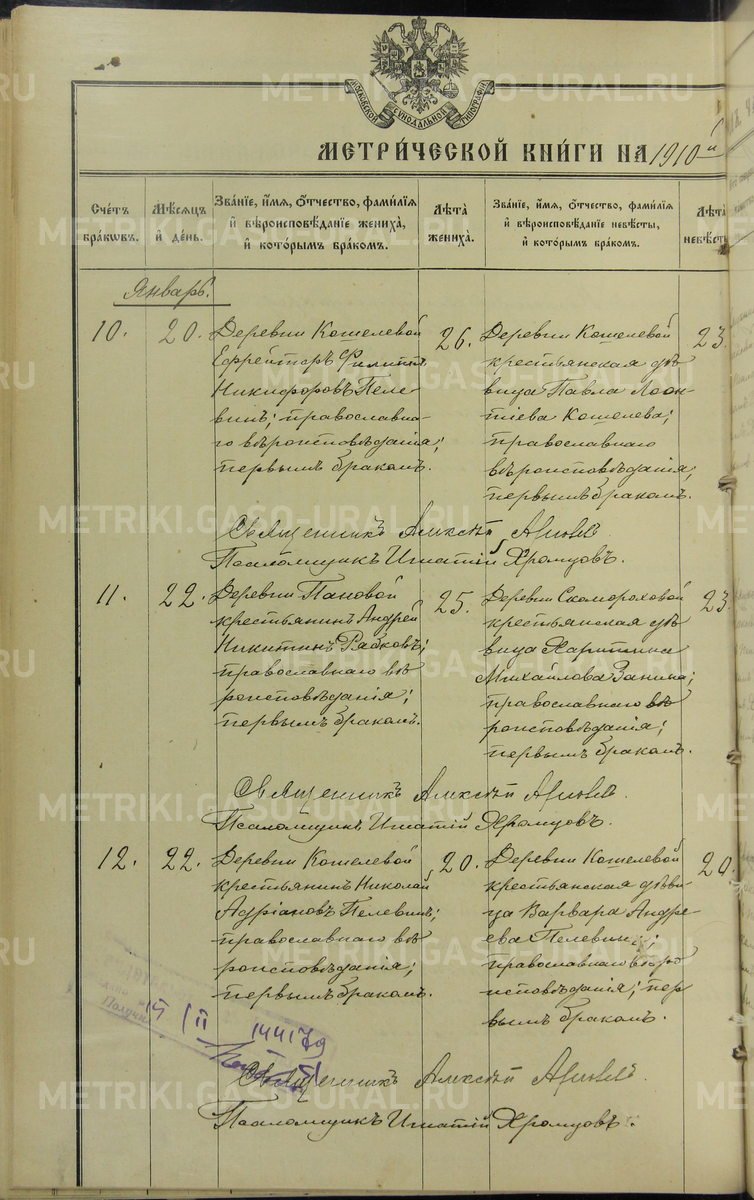 МОСКОВСКОЙ СѴНОДАЛЬНОЙ ТИПОГРАФІИ
МЕТРИ́ЧЕСКОЙ КНИ́ГИ НА 1910й
Сче́тъ бра́кωвъ.
Мѣ́сяцъ и҆ де́нь.
Зва́нїе, и҆́мя, ѻ҆́тчество, фами́лїя и҆ вѣроисповѣ́данїе жениха̀, и҆ кото́рымъ бра́комъ.
Лѣ́та жениха̀.
Зва́нїе, и҆́мя, ѻ҆́тчество, фами́лїя и҆ вѣроисповѣ́данїе невѣ́сты, и҆ кото́рымъ бра́комъ.
Лѣ́та невѣ́сты
Январь.
10.
20.
Деревни Кошелевой
Ефрейторъ Филиппъ
Никифоровъ Пеле-
винъ; православна-
го вѣроисповѣданія;
первымъ бракомъ.
26.
Деревни Кошелевой
крестьянская дѣ
вица Павла Леон-
тіева Кошелева;
православнаго
вѣроисповѣданія;
первымъ бракомъ.
23.
Священникъ Алексѣй
Псаломщикъ Игнатій Хромцовъ.
11.
22.
Деревни Пановой
крестьянинъ Андрей
Никитинъ Рабковъ;
православнаго вѣ
роисповѣданія;
первымъ бракомъ.
25.
Деревни Скомороховой
крестьянская дѣ
вица Харитина
Михайлова Занина;
православнаго вѣ
роисповѣданія;
первымъ бракомъ.
23.
Священникъ Алексѣй
Псаломщикъ Игнатій Хромцовъ.
12.
22.
Деревни Кошелевой
крестьянинъ Николай
Адріановъ Пелевинъ;
православнаго вѣ
роисповѣданія;
первымъ бракомъ.
20.
Деревни Кошелевой
крестьянская дѣви
ца Варвара Андре
ева Пелевина;
православнаго вѣро
исповѣданія; пер
вымъ бракомъ.
20.
Священникъ Алексѣй
Псаломщикъ Игнатій Хромцовъ.
METRIKI.GASO-URAL.RU
METRIKI.GASO-URAL.RU
METRIKI.GASO-URAL.RU
METRIKI.GASO-URAL.RU
METRIKI.GASO-URAL.RU
METRIKI.GASO-URAL.RU
METRIKI.GASO-URAL.RU
METRIKI.GASO-URAL.RU